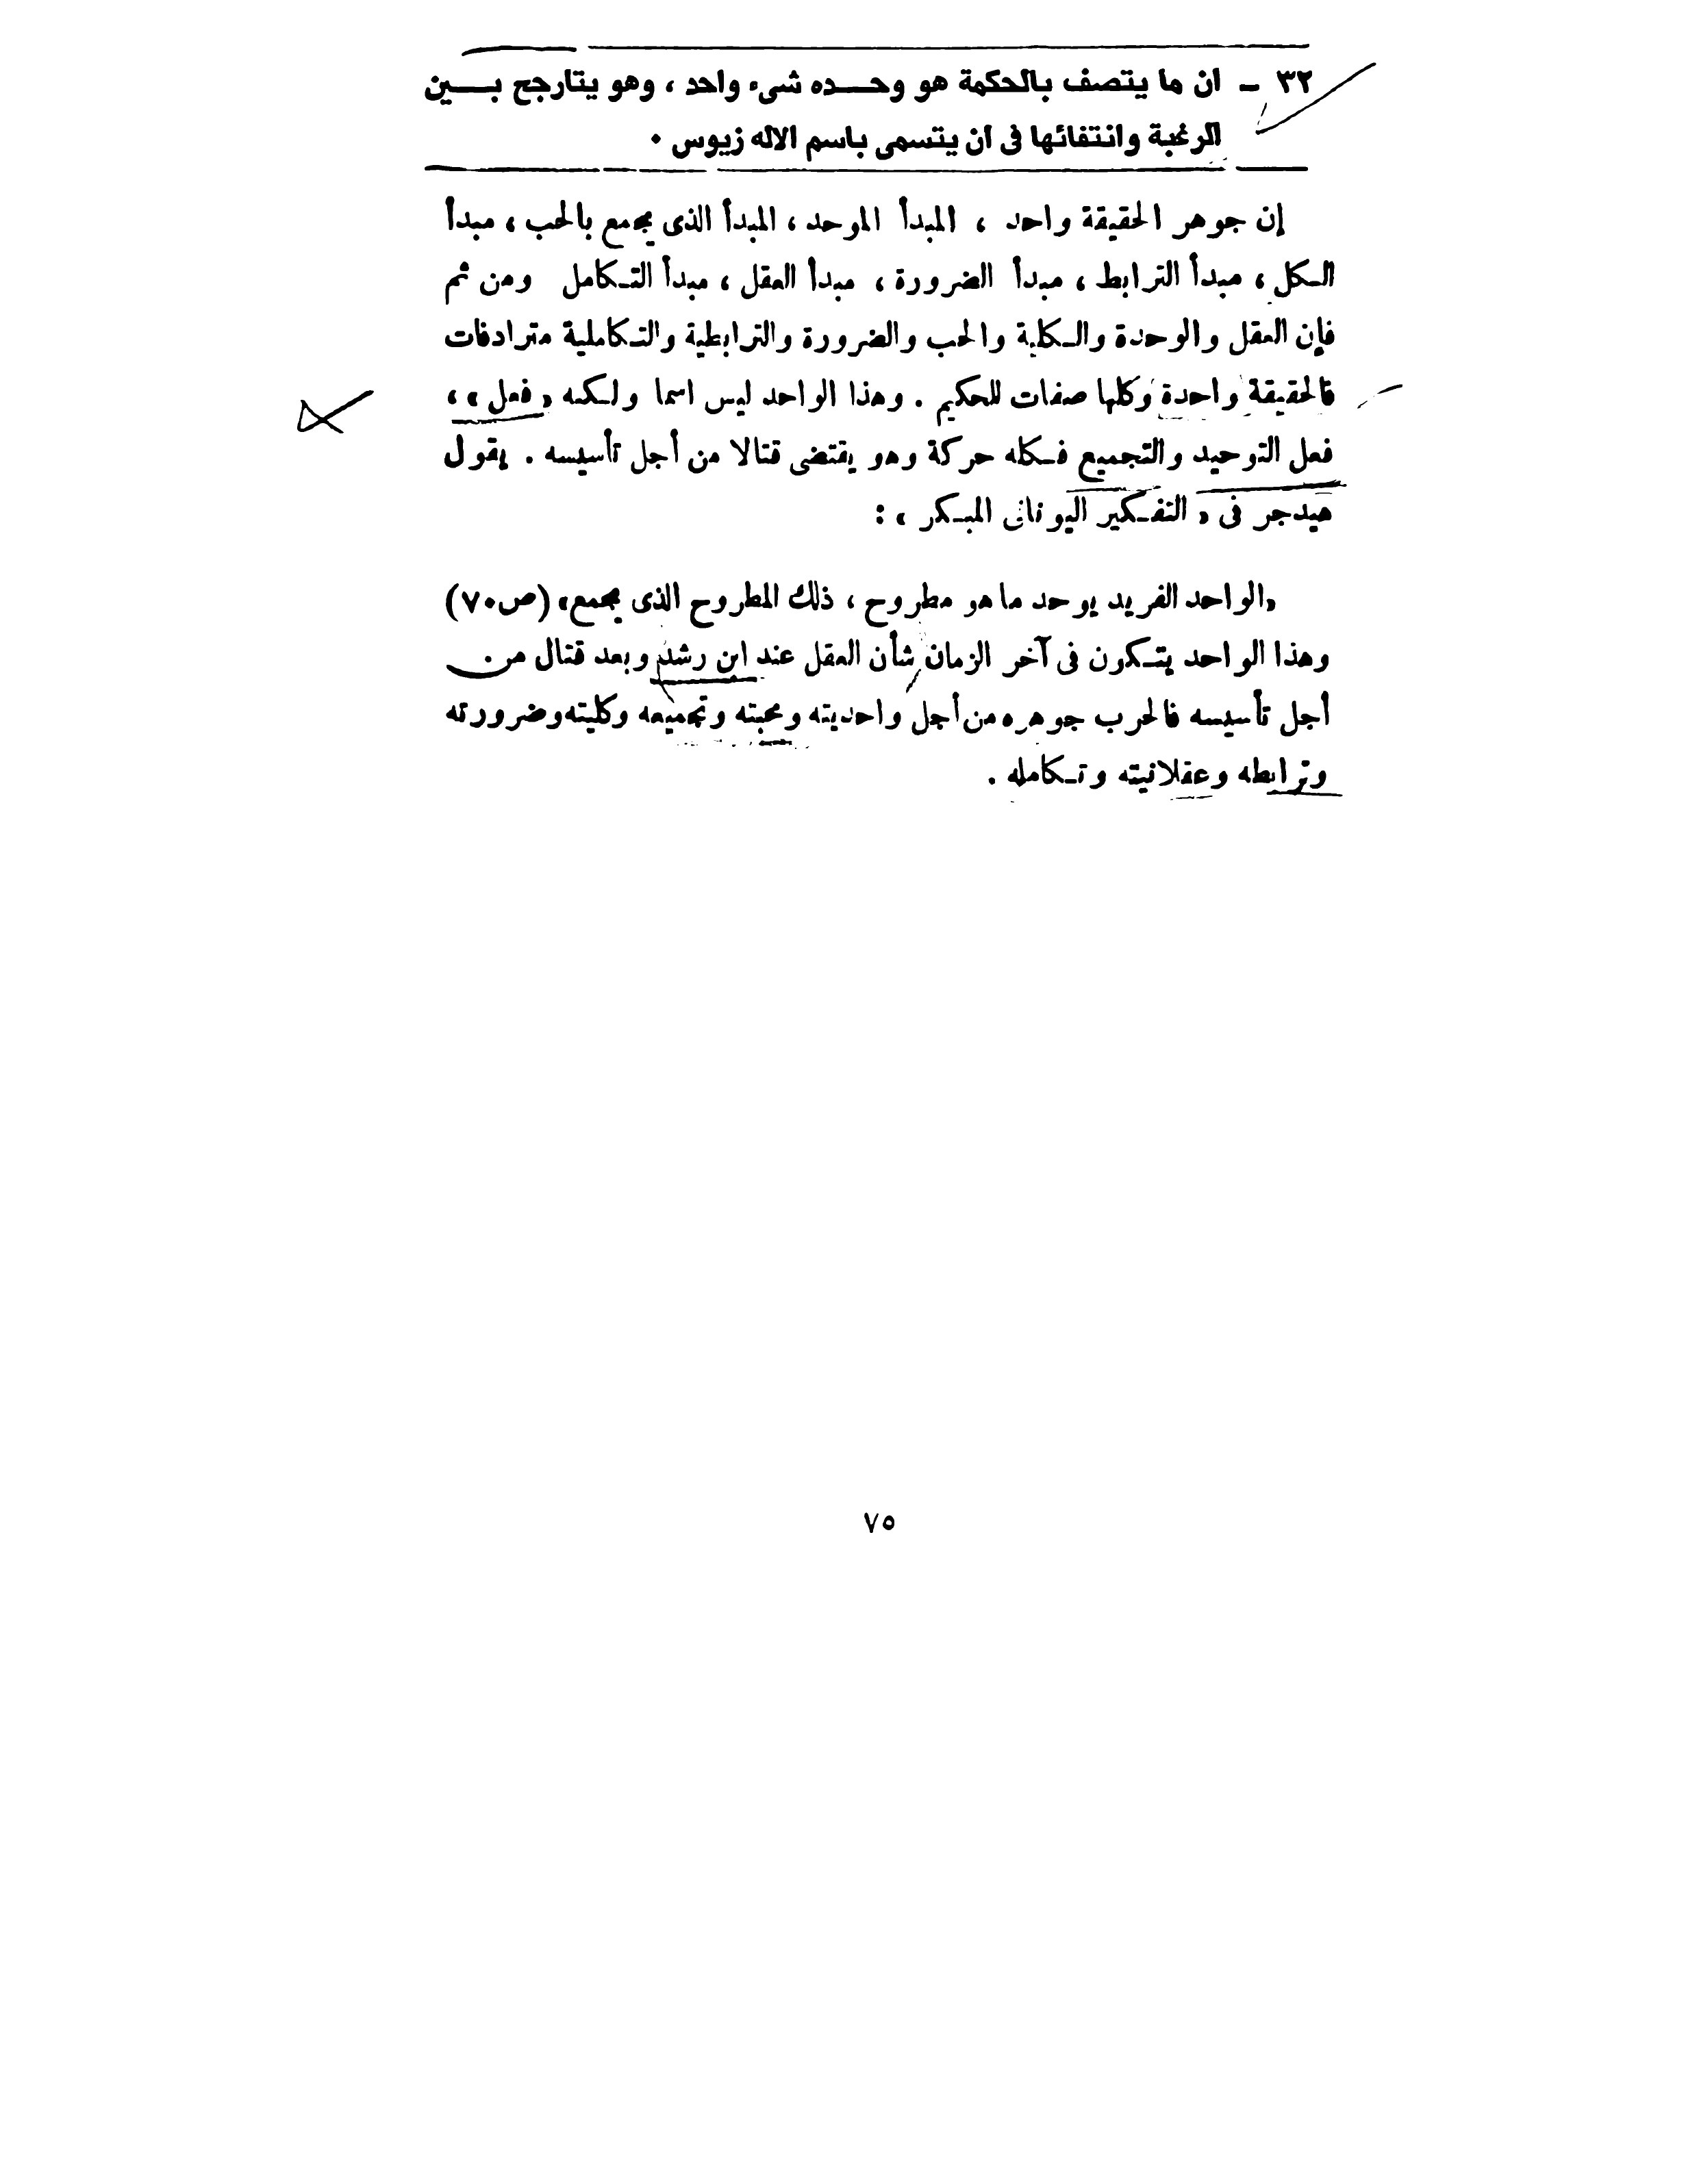 ٣٢ – ان ما يتصف بالحكمة هو وحـــده شىء واحد ، وهو يتارجح بـــين
الرغبة وانتفائها فى ان يتسمى باسم الاله زيوس ٠
إن جوهر الحقيقة واحد ، المبدأ الموحد ، المبدأ الذى يجمع بالحب ، مبدأ
الـكل ، مبدأ الترابط ، مبدأ الضرورة ، مبدأ العقل ، مبدأ التـكامل ومن ثم
فإن العقل والوحدة والـكلية والحب والضرورة والترابطية والتـكاملية مترادفات
فالحقيقة واحدة وكلها صفات للحكيم . وهذا الواحد ليس اسما ولـكنه « فعل » ،
فعل التوحيد والتجميع فـكله حركة وهو يقتضى قتالا من أجل تأسيسه . يقول
هيدجر فى « التفـكير اليونانى المبـكر » :
«الواحد الفريد يوحد ما هو مطروح ، ذلك المطروح الذى يجمع» (ص٧٠)
وهذا الواحد يتـكون فى آخر الزمان شأن العقل عند ابن رشد وبعد قتال من
أجل تأسيسه فالحرب جوهره من أجل واحديته ومحبته وتجميعه وكليته وضرورته
وترابطه وعقلانيته وتـكامله .
٧٥